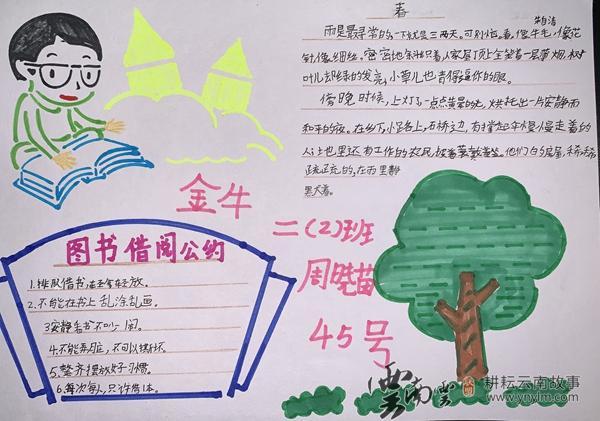 春
朱自清
雨是最寻常的,一下就是三两天。可别恼。看,像牛毛,像花
针,像细丝,密密地斜织着,人家屋顶上全笼着一层薄烟。树
叶儿却绿得发亮,小草儿也青得逼你的眼。
傍晚时候,上灯了,一点点黄晕的光,烘托出一片安静而
和平的夜。在乡下,小路上,石桥边,有撑起伞慢慢走着的
人;地里还有工作的农民,披着蓑戴着笠。他们的房屋,稀稀
疏疏的,在雨里静
默着。
金牛
二(2)班
周晓苗
45号
图书借阅公约
1.排队借书
轻放。
2.不能在书上乱涂乱画。
3安静看书不吵闹。
4.不能弄
5.整齐摆放好习惯。
6.每次每人只许借1本。
雲南
耕耘云南故事
www.ynylm.com